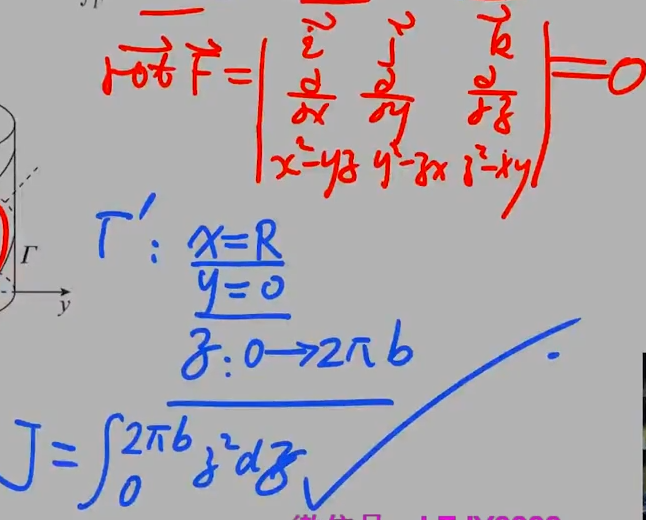 rot F = | i j k
∂/∂x ∂/∂y ∂/∂z
x²-yz y²-zx z²-xy | = 0
Γ': x=R
y=0
Γ
y
z: 0→2πb
J = ∫₀^{2πb} z²dz